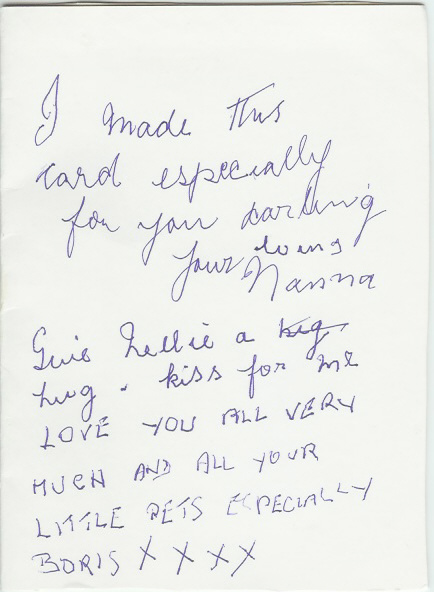 I made this
card especially
for you darling
Your loving
Nanna
Give Nellie a big
hug . kiss for me
LOVE YOU ALL VERY
MUCH AND ALL YOUR
LITTLE PETS ESPECIALLY
BORIS X X X X